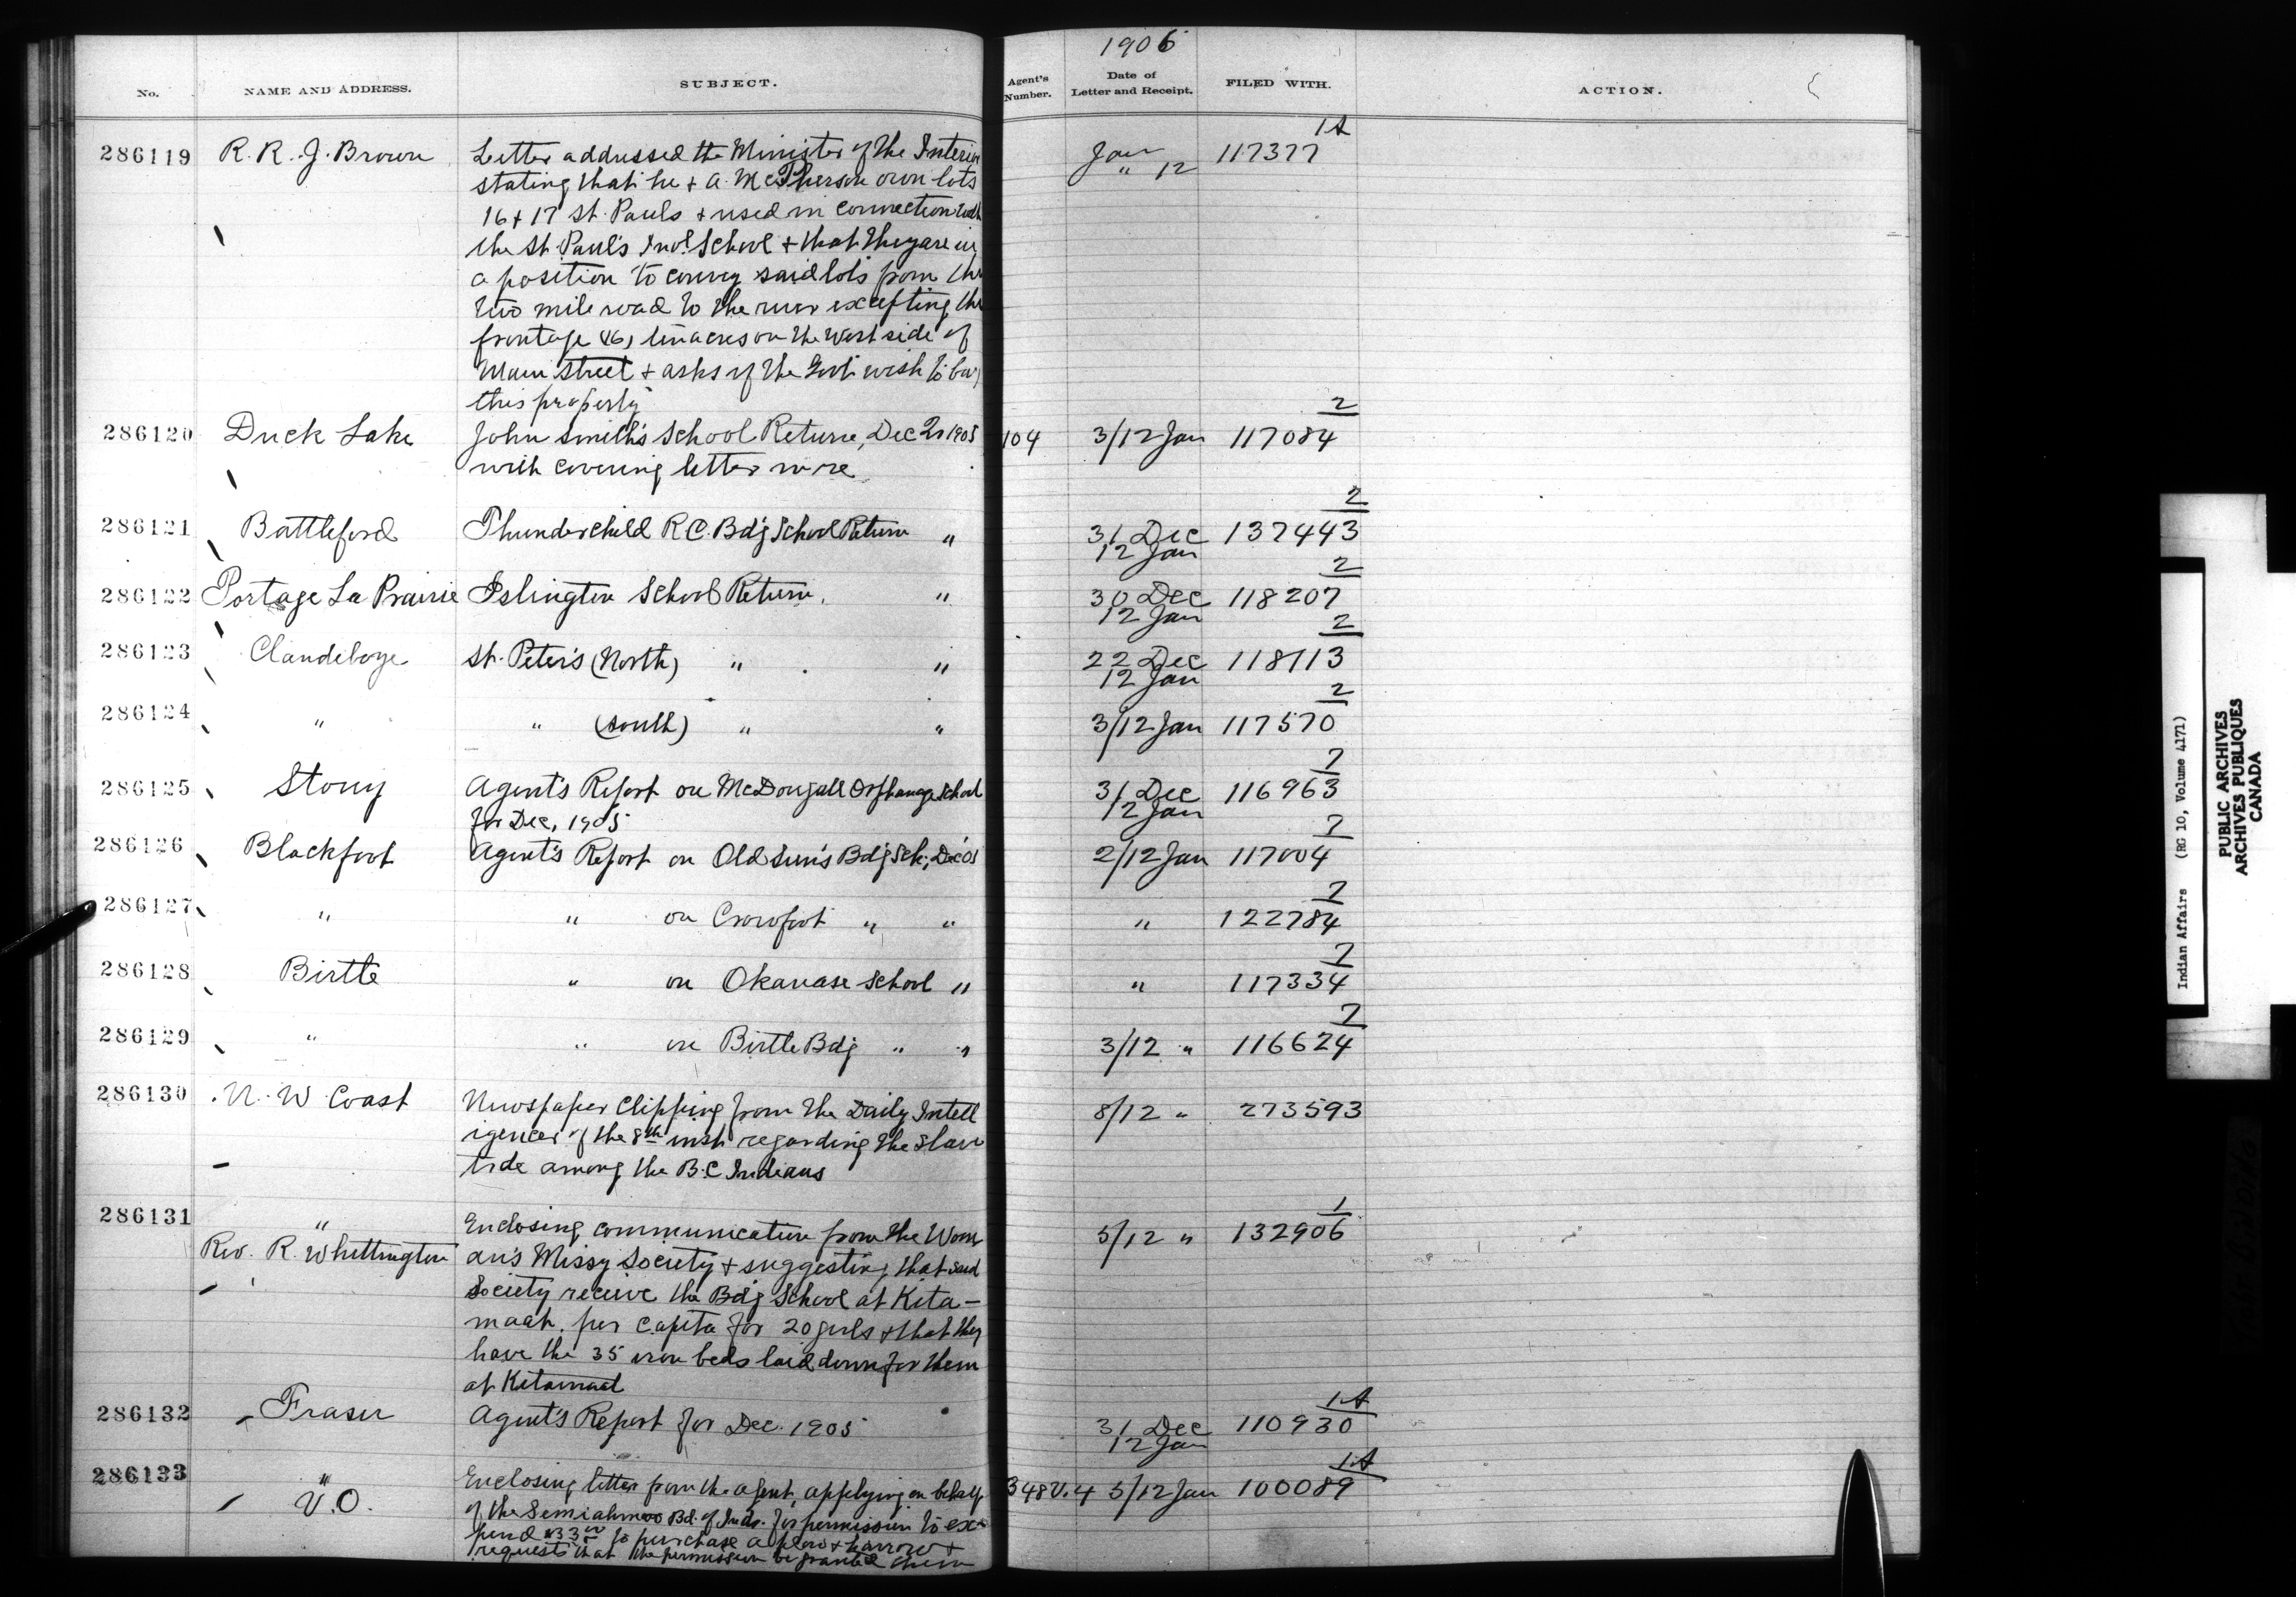 1906
No. NAME AND ADDRESS. SUBJECT. Agent's Number. Date of Letter and Receipt. FILED WITH. ACTION.
286119 R. R. J. Brown Letter addressed the Minister of the Interior Jan 117377 1A
stating that he & A. McPherson own lots " 12
16 & 17 St. Pauls & used in connection with
the St. Paul's Indl School & that they are in
a position to convey said lots from the
two mile road to the river excepting the
frontage (6) ten acres on the West side of
Main Street & asks if the Govt wish to buy
this property
286120 Duck Lake John Smith's School Return, Dec Qr 1905 104 3/12 Jan 117084 2
with covering letter in re
286121 Battleford Thunderchild R.C. Bdg School Return " 31 Dec 12 Jan 137443 2
286122 Portage La Prairie Islington School Return. " 30 Dec 12 Jan 118207 2
286123 Clandeboye St. Peter's (North) " " 22 Dec 12 Jan 118113 2
286124 " " (South) " " 3/12 Jan 117570 2
286125 Stony Agent's Report on McDougall Orphanage School 31 Dec 12 Jan 116963 7
for Dec, 1905
286126 Blackfoot Agent's Report on Old Sun's Bdg Sch; Dec '05 2/12 Jan 117004 7
286127 " " on Crowfoot " " " 122784 7
286128 Birtle " on Okanase School " " 117334 7
286129 " " on Birtle Bdg " " 3/12 " 116624 7
286130 N. W Coast Newspaper Clipping from the Daily Intell 8/12 " 273593
igencer of the 8th inst regarding the slave
trde among the B.C Indians
286131 " Enclosing communication from the Wom 5/12 " 132906 1
Rev. R. Whittington an's Missy Society & suggesting that said
Society receive the Bdg School at Kita-
maat. per capita for 20 girls & that they
have the 35 iron beds laid down for them
at Kitamaat
286132 Fraser Agent's Report for Dec. 1905 31 Dec 12 Jan 110930 1A
286133 " Enclosing letter from the agent, applying on behalf 348 V.4 5/12 Jan 100089 1A
V.O. of the Semiahmoo Bd. of Inds. for permission to ex-
pend $33 00 to purchase a plow & harrow &
requests that the permission be granted them
Indian Affairs (RG 10, Volume 4171)
PUBLIC ARCHIVES
ARCHIVES PUBLIQUES
CANADA